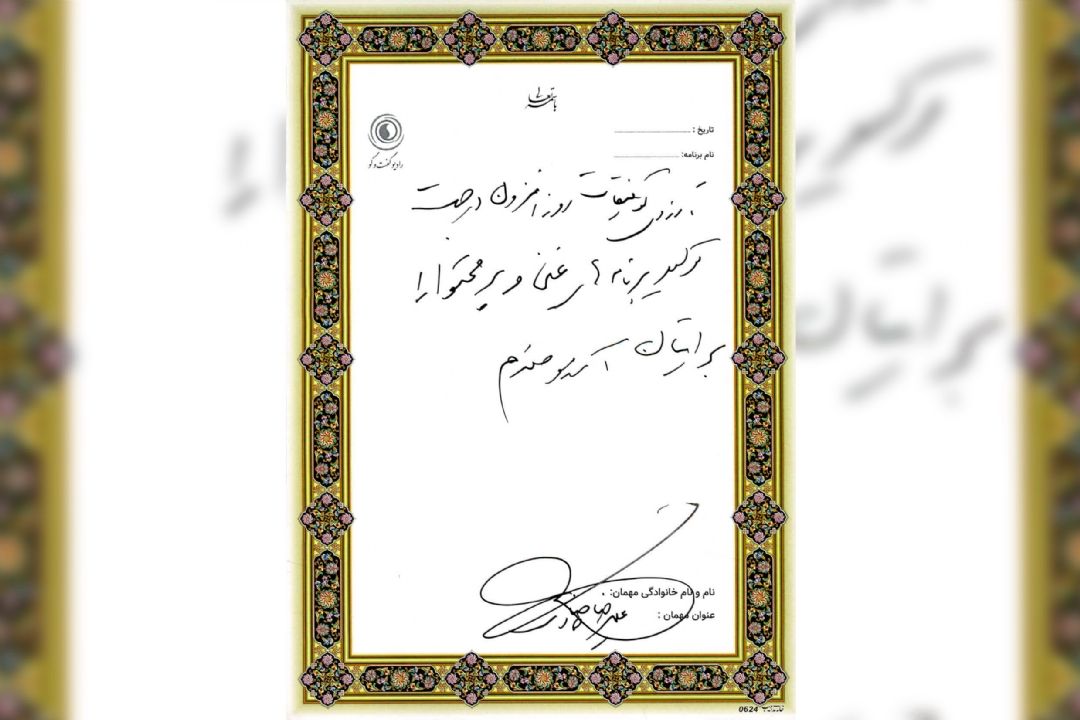 باسمه تعالی
تاریخ :
رادیو گفت و گو
نام برنامه:
آرزوی توفیقات روز افزون در جهت
تولید برنامه های غنی و پر محتوا را
برایتان
نام و نام خانوادگی مهمان:
عنوان مهمان :
علیرضا
0624